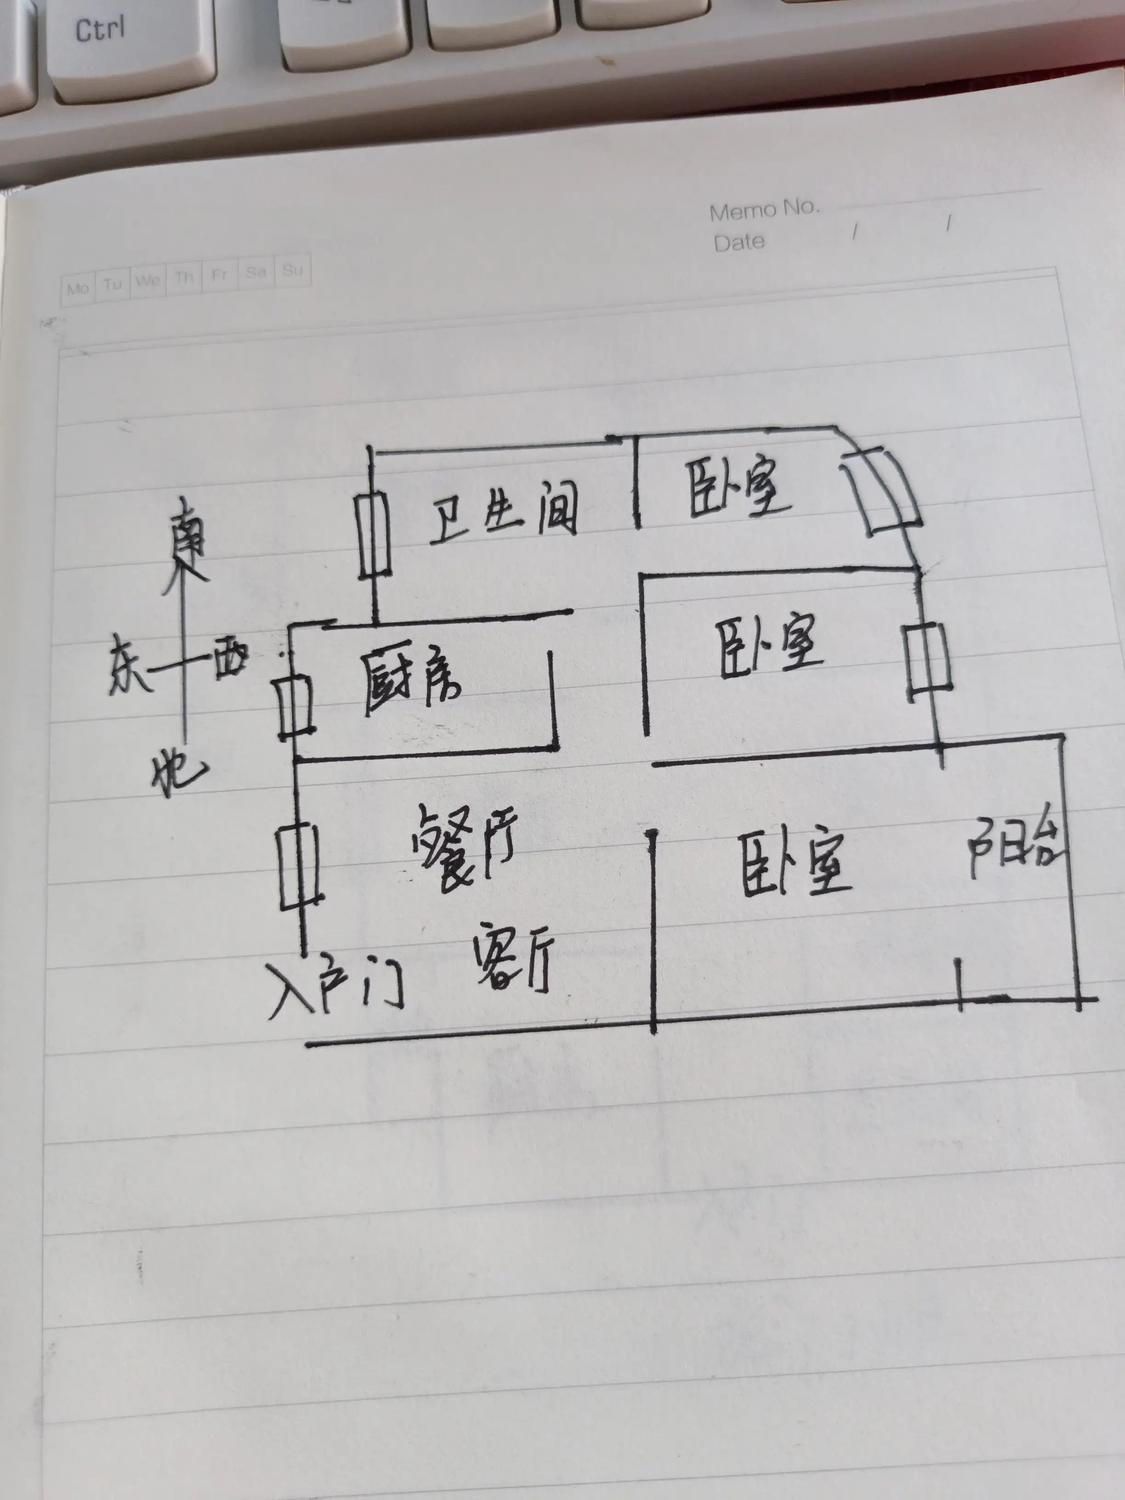 Ctrl
Memo No.
Date / /
Mo Tu We Th Fr Sa Su
卫生间 卧室
南
东 西
北
厨房 卧室
餐厅 卧室 阳台
客厅
入户门